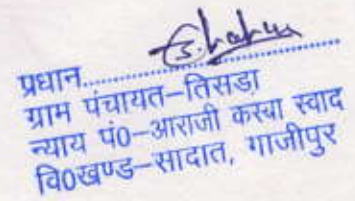 प्रधान....................
ग्राम पंचायत–तिसडा
न्याय पं0–आराजी कस्बा स्वाद
वि0खण्ड–सादात, गाजीपुर